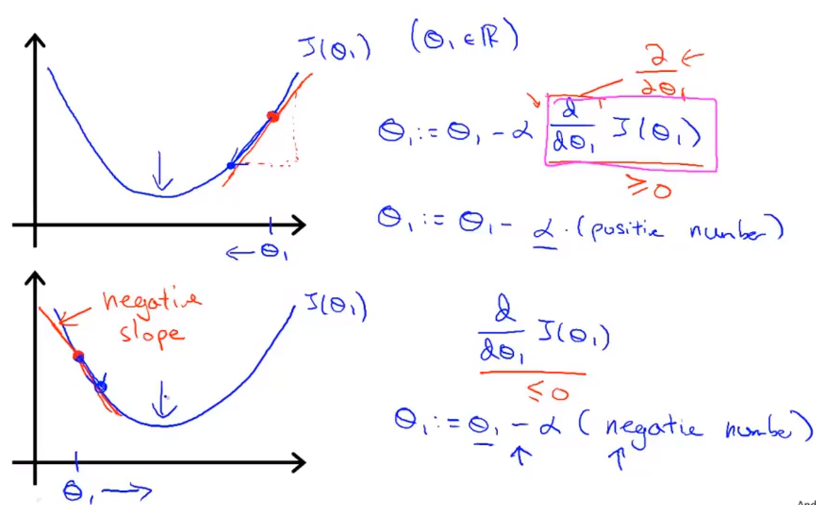 J(θ₁) (θ₁ ∈ ℝ)
∂/∂θ₁ ←
θ₁ := θ₁ - α d/dθ₁ J(θ₁)
≥ 0
θ₁ := θ₁ - α · (positie number)
← θ₁
negative slope
J(θ₁)
d/dθ₁ J(θ₁)
≤ 0
θ₁ := θ₁ - α (negatie number)
θ₁ →
And